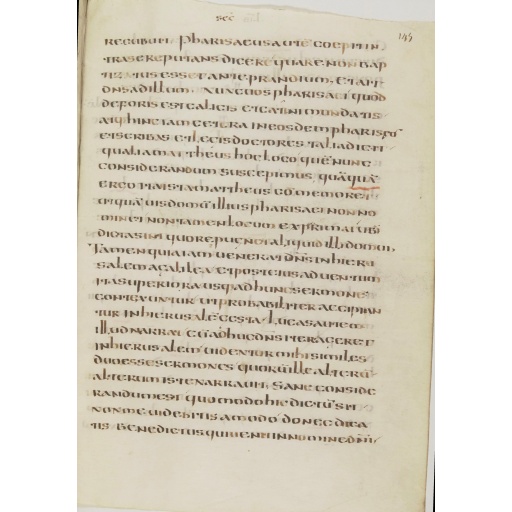 sec̄
145
recubuit pharisaeus autē coepit in
tra se reputans dicere quare non bap
tizatus esset ante prandium et ait
dn̄s ad illum nunc uos pharisaei quod
deforis est calicis et catini mundatis
atq hinc iam cetera in eosdem pharisaeos
et scribas et legis doctores talia dicit
qualia mattheus hoc loco quē nunc
considerandum suscepimus quāquā
ergo ita ista mattheus cōmemoret
ut quāuis domū illius pharisaei non no
minet non tamen locum exprimat ubi
dicta sint quo repugnet aliquid illi domui
Tamen quia iam uenerat dn̄s in hieru
salem a galilea et post eius aduentum
ita superiora usq ad hunc sermonē
contexuntur ut probabiliter accipian
tur in hierusalē gesta lucas autem
illud narrat cū adhuc dn̄s iter ageret
in hierusalem uidentur mihi similes
duo esse sermones quorū ille alterū
alterum iste narrauit Sane conside
randum est quomodo hic dictū sit
non me uidebitis amodo donec dica
tis benedictus qui uenit in nomine dn̄i